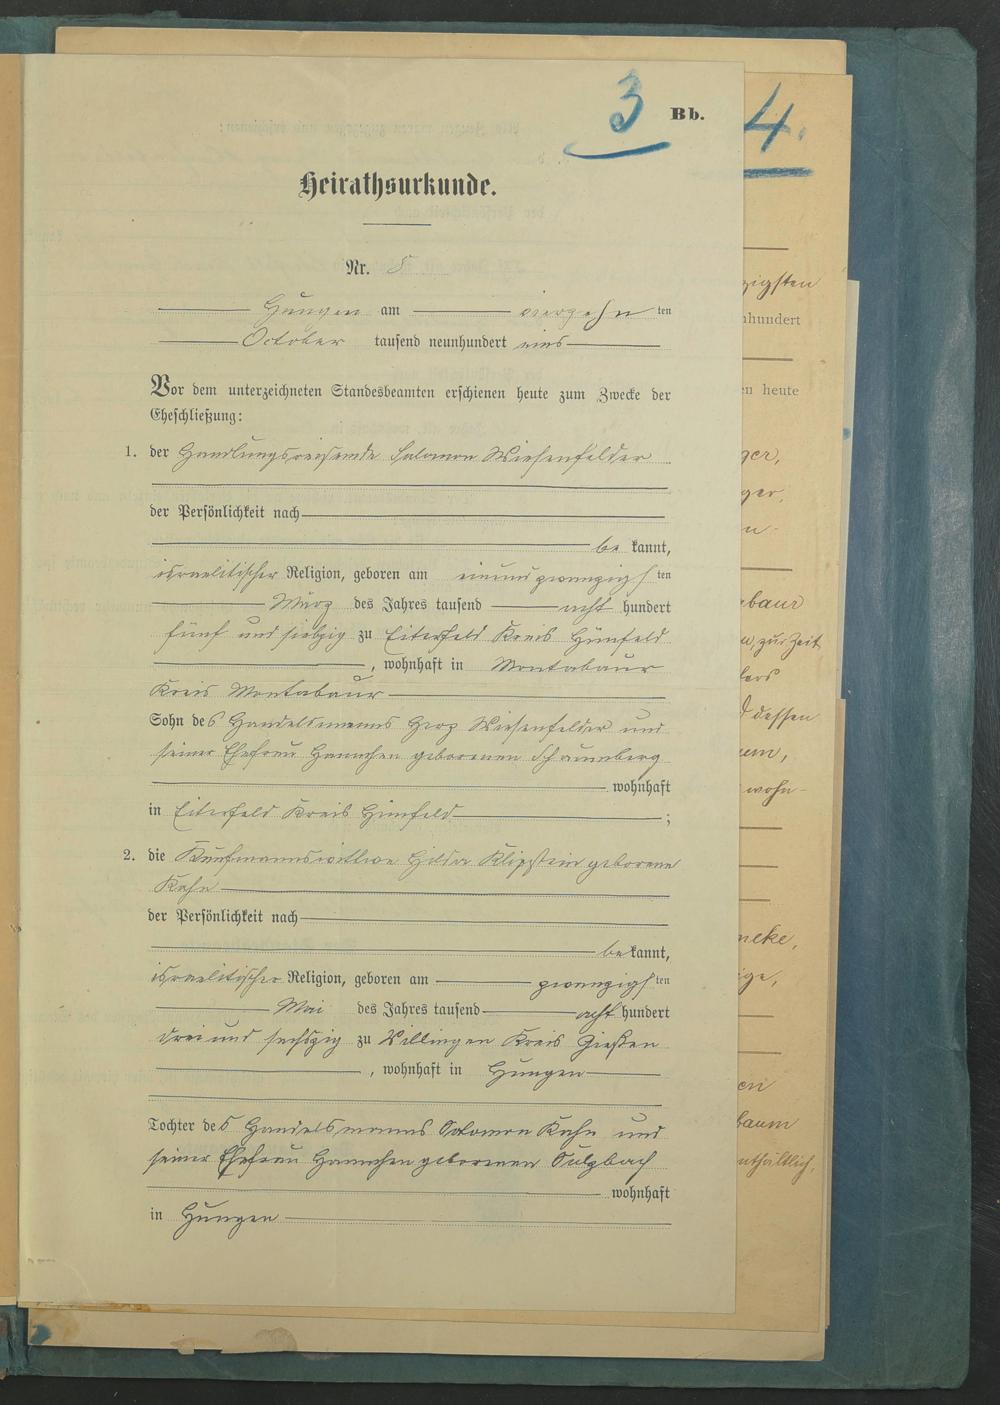 3
Bb.
4.
Heirathsurkunde.
Nr. 8
Hungen am vierzehn ten
October tausend neunhundert eins
Vor dem unterzeichneten Standesbeamten erschienen heute zum Zwecke der
Eheschließung:
1. der Handlungsreisende Salomon Wiesenfelder
der Persönlichkeit nach
be kannt,
israelitischer Religion, geboren am einundzwanzigs ten
März des Jahres tausend acht hundert
fünf und siebzig zu Eiterfeld Kreis Hünfeld
, wohnhaft in Montabaur
Kreis Montabaur
Sohn des Handelsmanns Herz Wiesenfelder und
seiner Ehefrau Hannchen geborenen Schaumberg
wohnhaft
in Eiterfeld Kreis Hünfeld ;
2. die Kaufmannswittwe Hilda Klippstein geborene
Kahn
der Persönlichkeit nach
be kannt,
israelitischer Religion, geboren am zwanzigs ten
Mai des Jahres tausend acht hundert
drei und sechszig zu Villingen Kreis Gießen
, wohnhaft in Hungen
Tochter des Handelsmanns Salomon Kahn und
seiner Ehefrau Hannchen geborenen Sulzbach
wohnhaft
in Hungen
zigsten
nhundert
en heute
ger,
ger,
n-
baur
n, zur Zeit
lers
d dessen
um,
wohn-
neke,
ige,
en
baum
nthältlich,